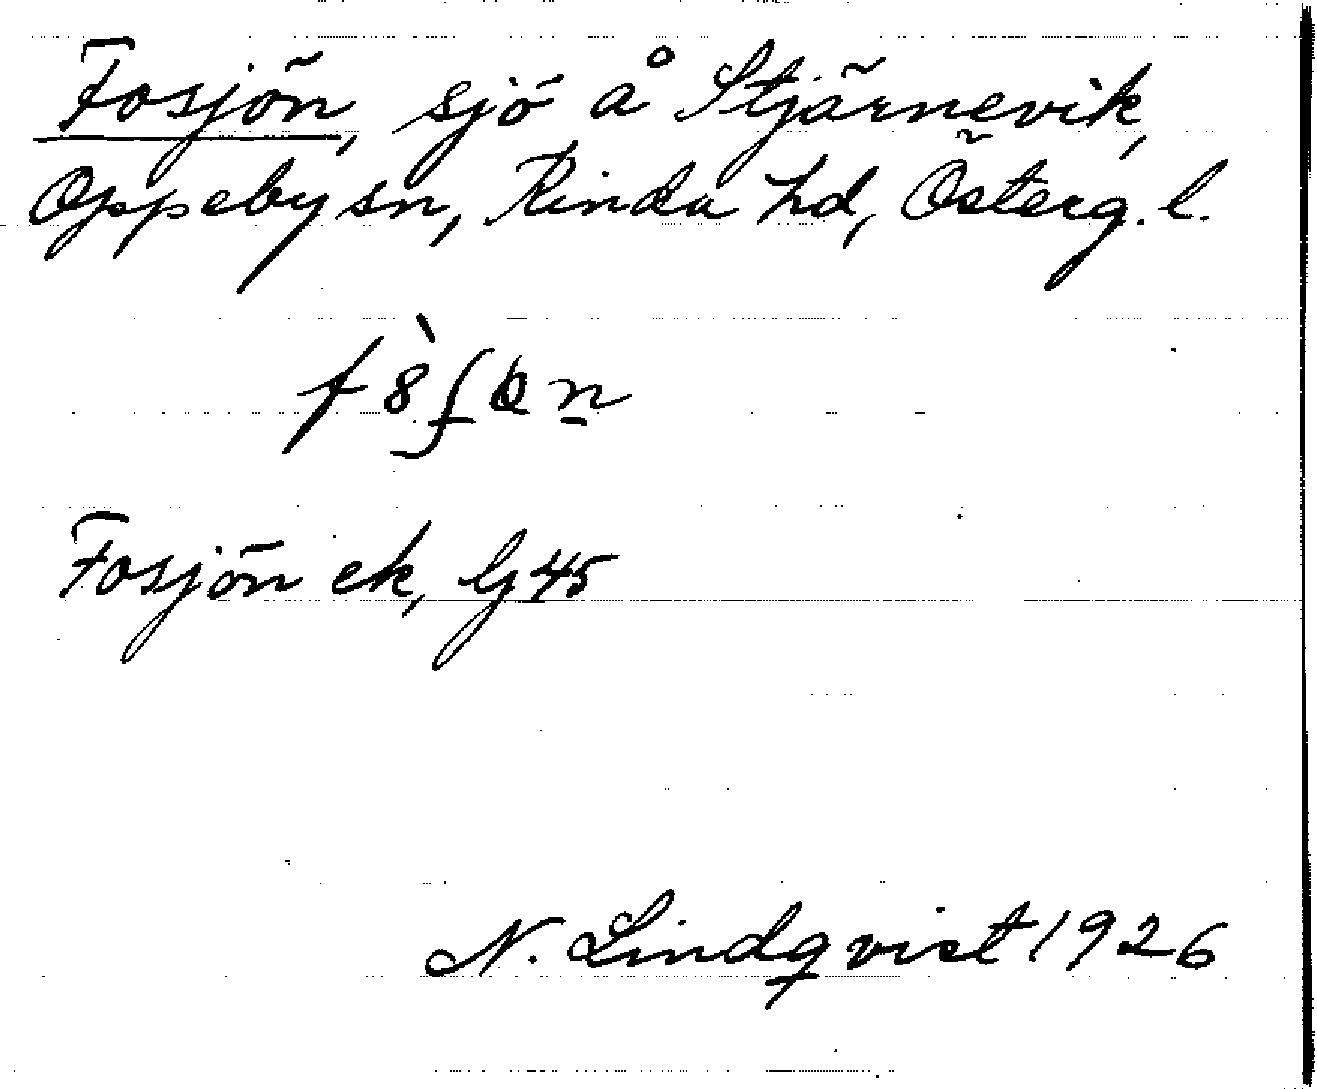 Fosjön, sjö å Stjärnevik,
Oppeby sn, Kinda hd, Österg. l.
Fosjön ek, bj 45
N. Lindqvist 1926